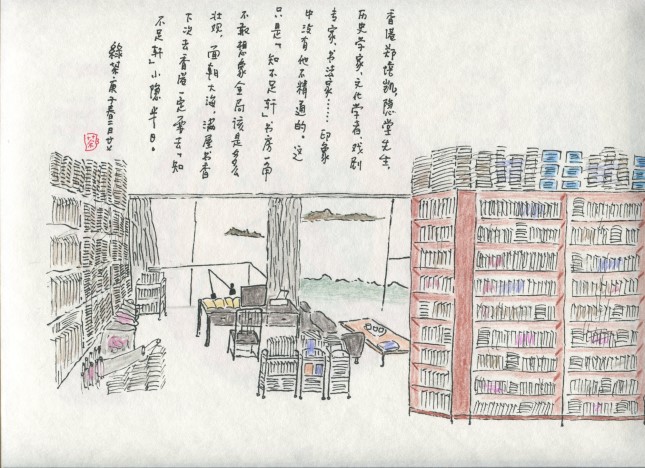 香港郑培凯，隐堂先生，
历史学家、文化学者、戏剧
专家、书法家……印象
中没有他不精通的。这
只是「知不足轩」书房一角
不敢想象全局该是多么
壮观，面朝大海，满屋书香
下次去香港一定要去「知
不足轩」小隐半日。
绿茶庚子春二月廿